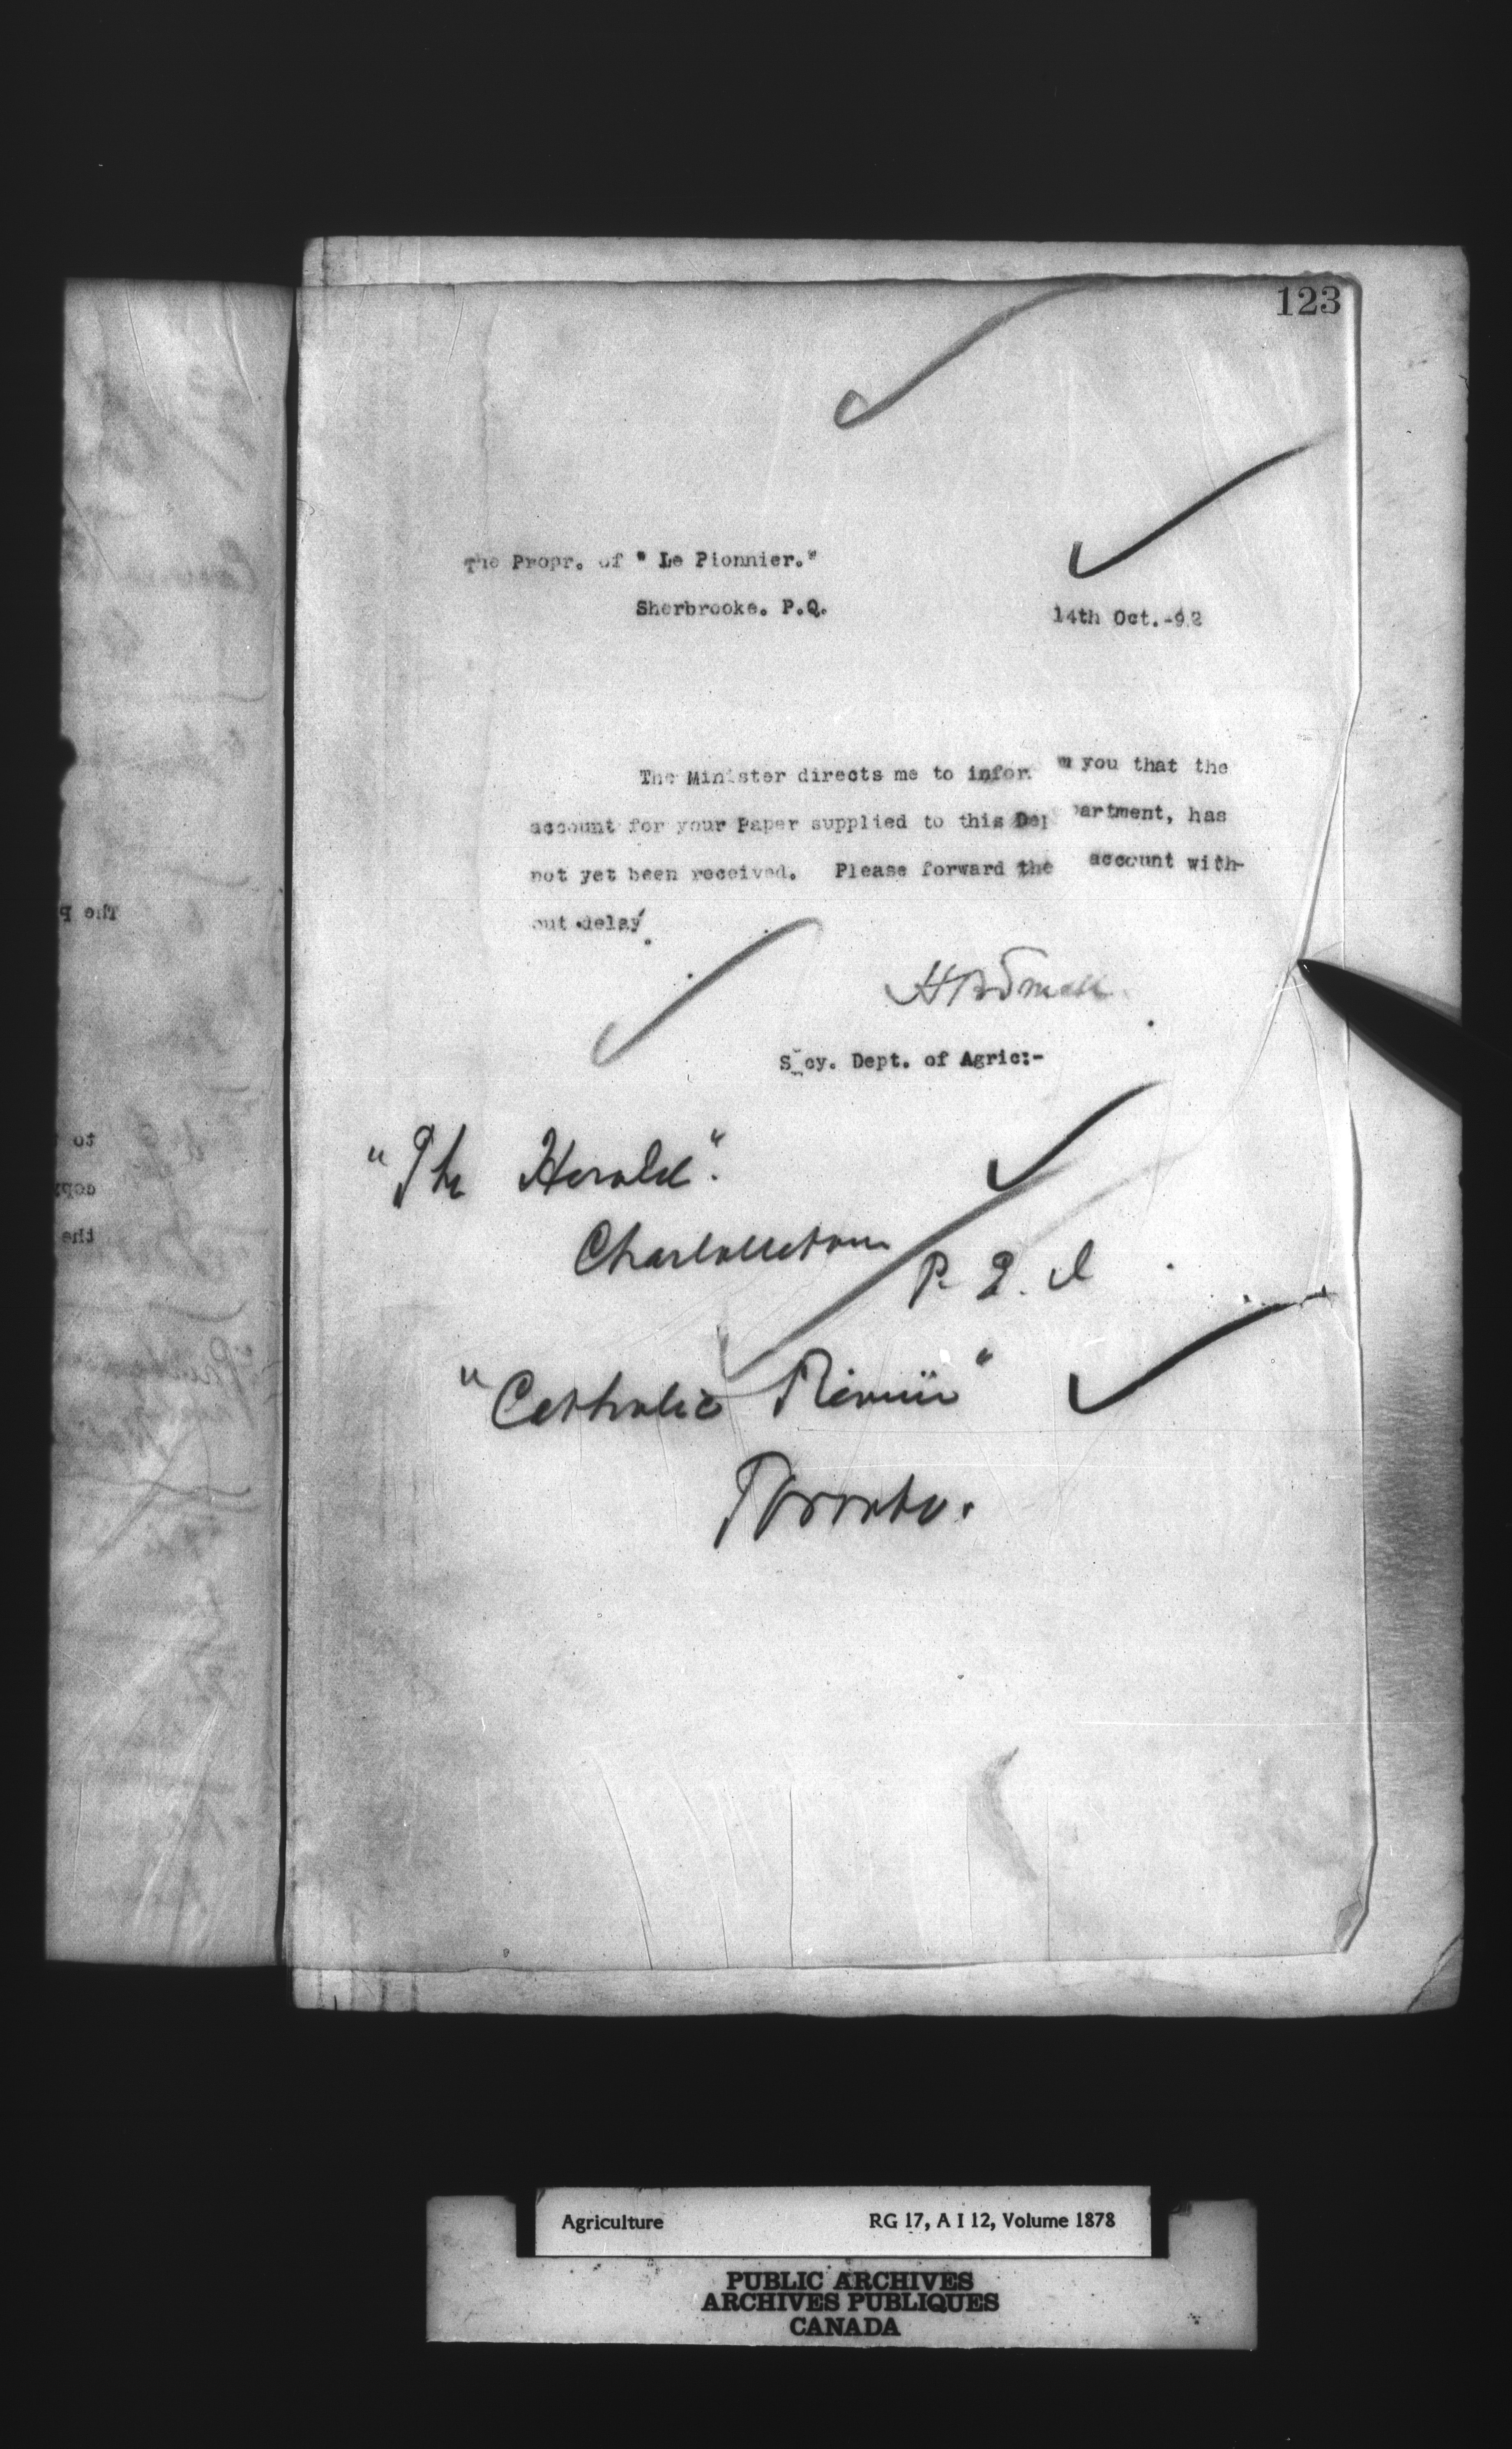 123
The Propr. of " Le Pionnier."
Sherbrooke. P.Q.
14th Oct.-92
The Minister directs me to inform you that the
account for your Paper supplied to this Department, has
not yet been received. Please forward the account with-
out delay.
HBSmall
Secy. Dept. of Agric:-
"The Herald".
Charlottetown
P. E. I
"Catholic Review"
Toronto.
Agriculture RG 17, A I 12, Volume 1878
PUBLIC ARCHIVES
ARCHIVES PUBLIQUES
CANADA